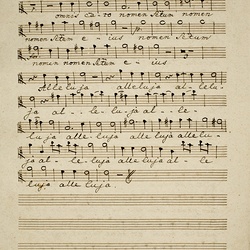 omnis ca- ro nomen Situm nomen
nomen Situm e- ius nomen Situm
nomen nomen Situm e- ius
Alleluja alleluja allelu-
ja al- - le- luja al- - le-
luja alle luja alle luja allelu-
ja al- le- luja alleluja al- le
luja alle luja.